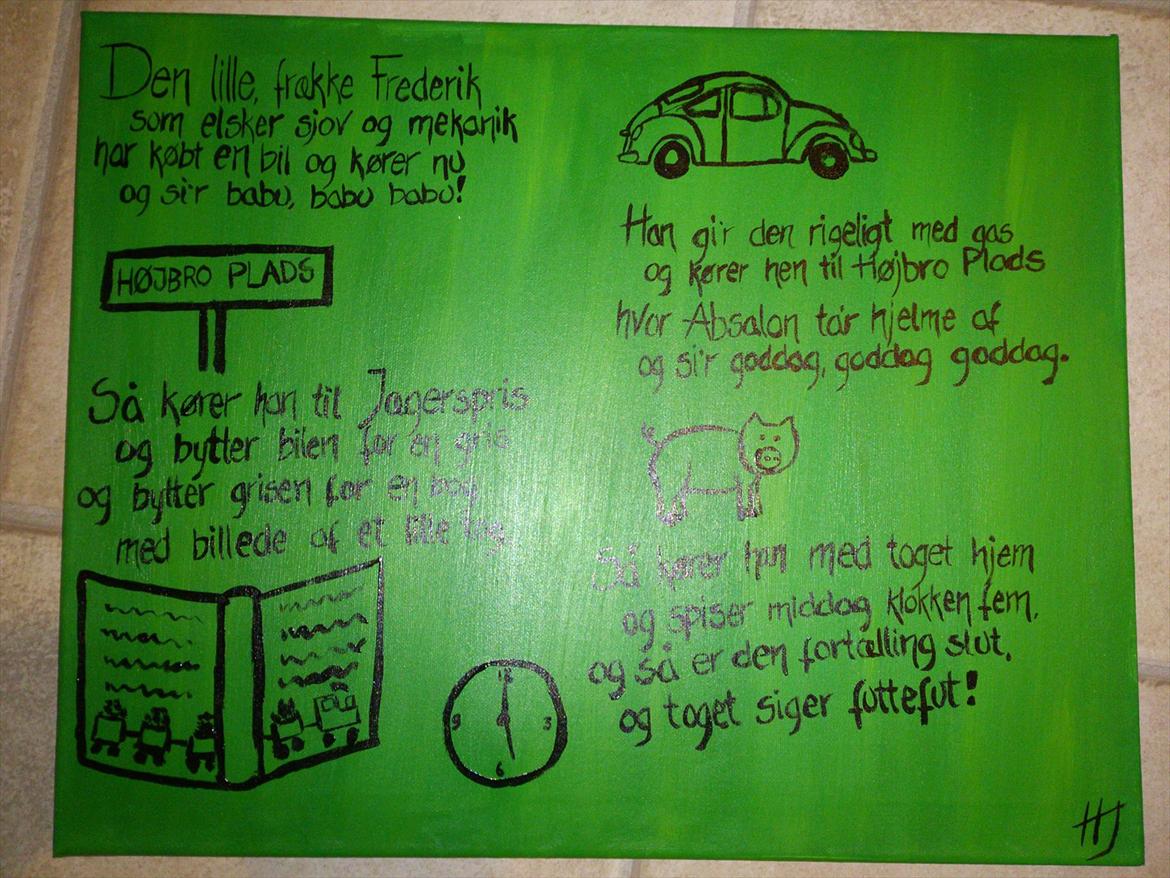 Den lille, frække Frederik
som elsker sjov og mekanik
har købt en bil og kører nu
og si'r babu, babu babu!
Han gi'r den rigeligt med gas
og kører hen til Højbro Plads
hvor Absalon ta'r hjelme af
og si'r goddag, goddag goddag.
HØJBRO PLADS
Så kører han til Jagerspris
og bytter bilen for en gris
og bytter grisen for en bog
med billede af et lille tog.
Så kører han med toget hjem
og spiser middag klokken fem,
og så er den fortælling slut,
og toget siger futtefut!
12
9 3
6
HJ